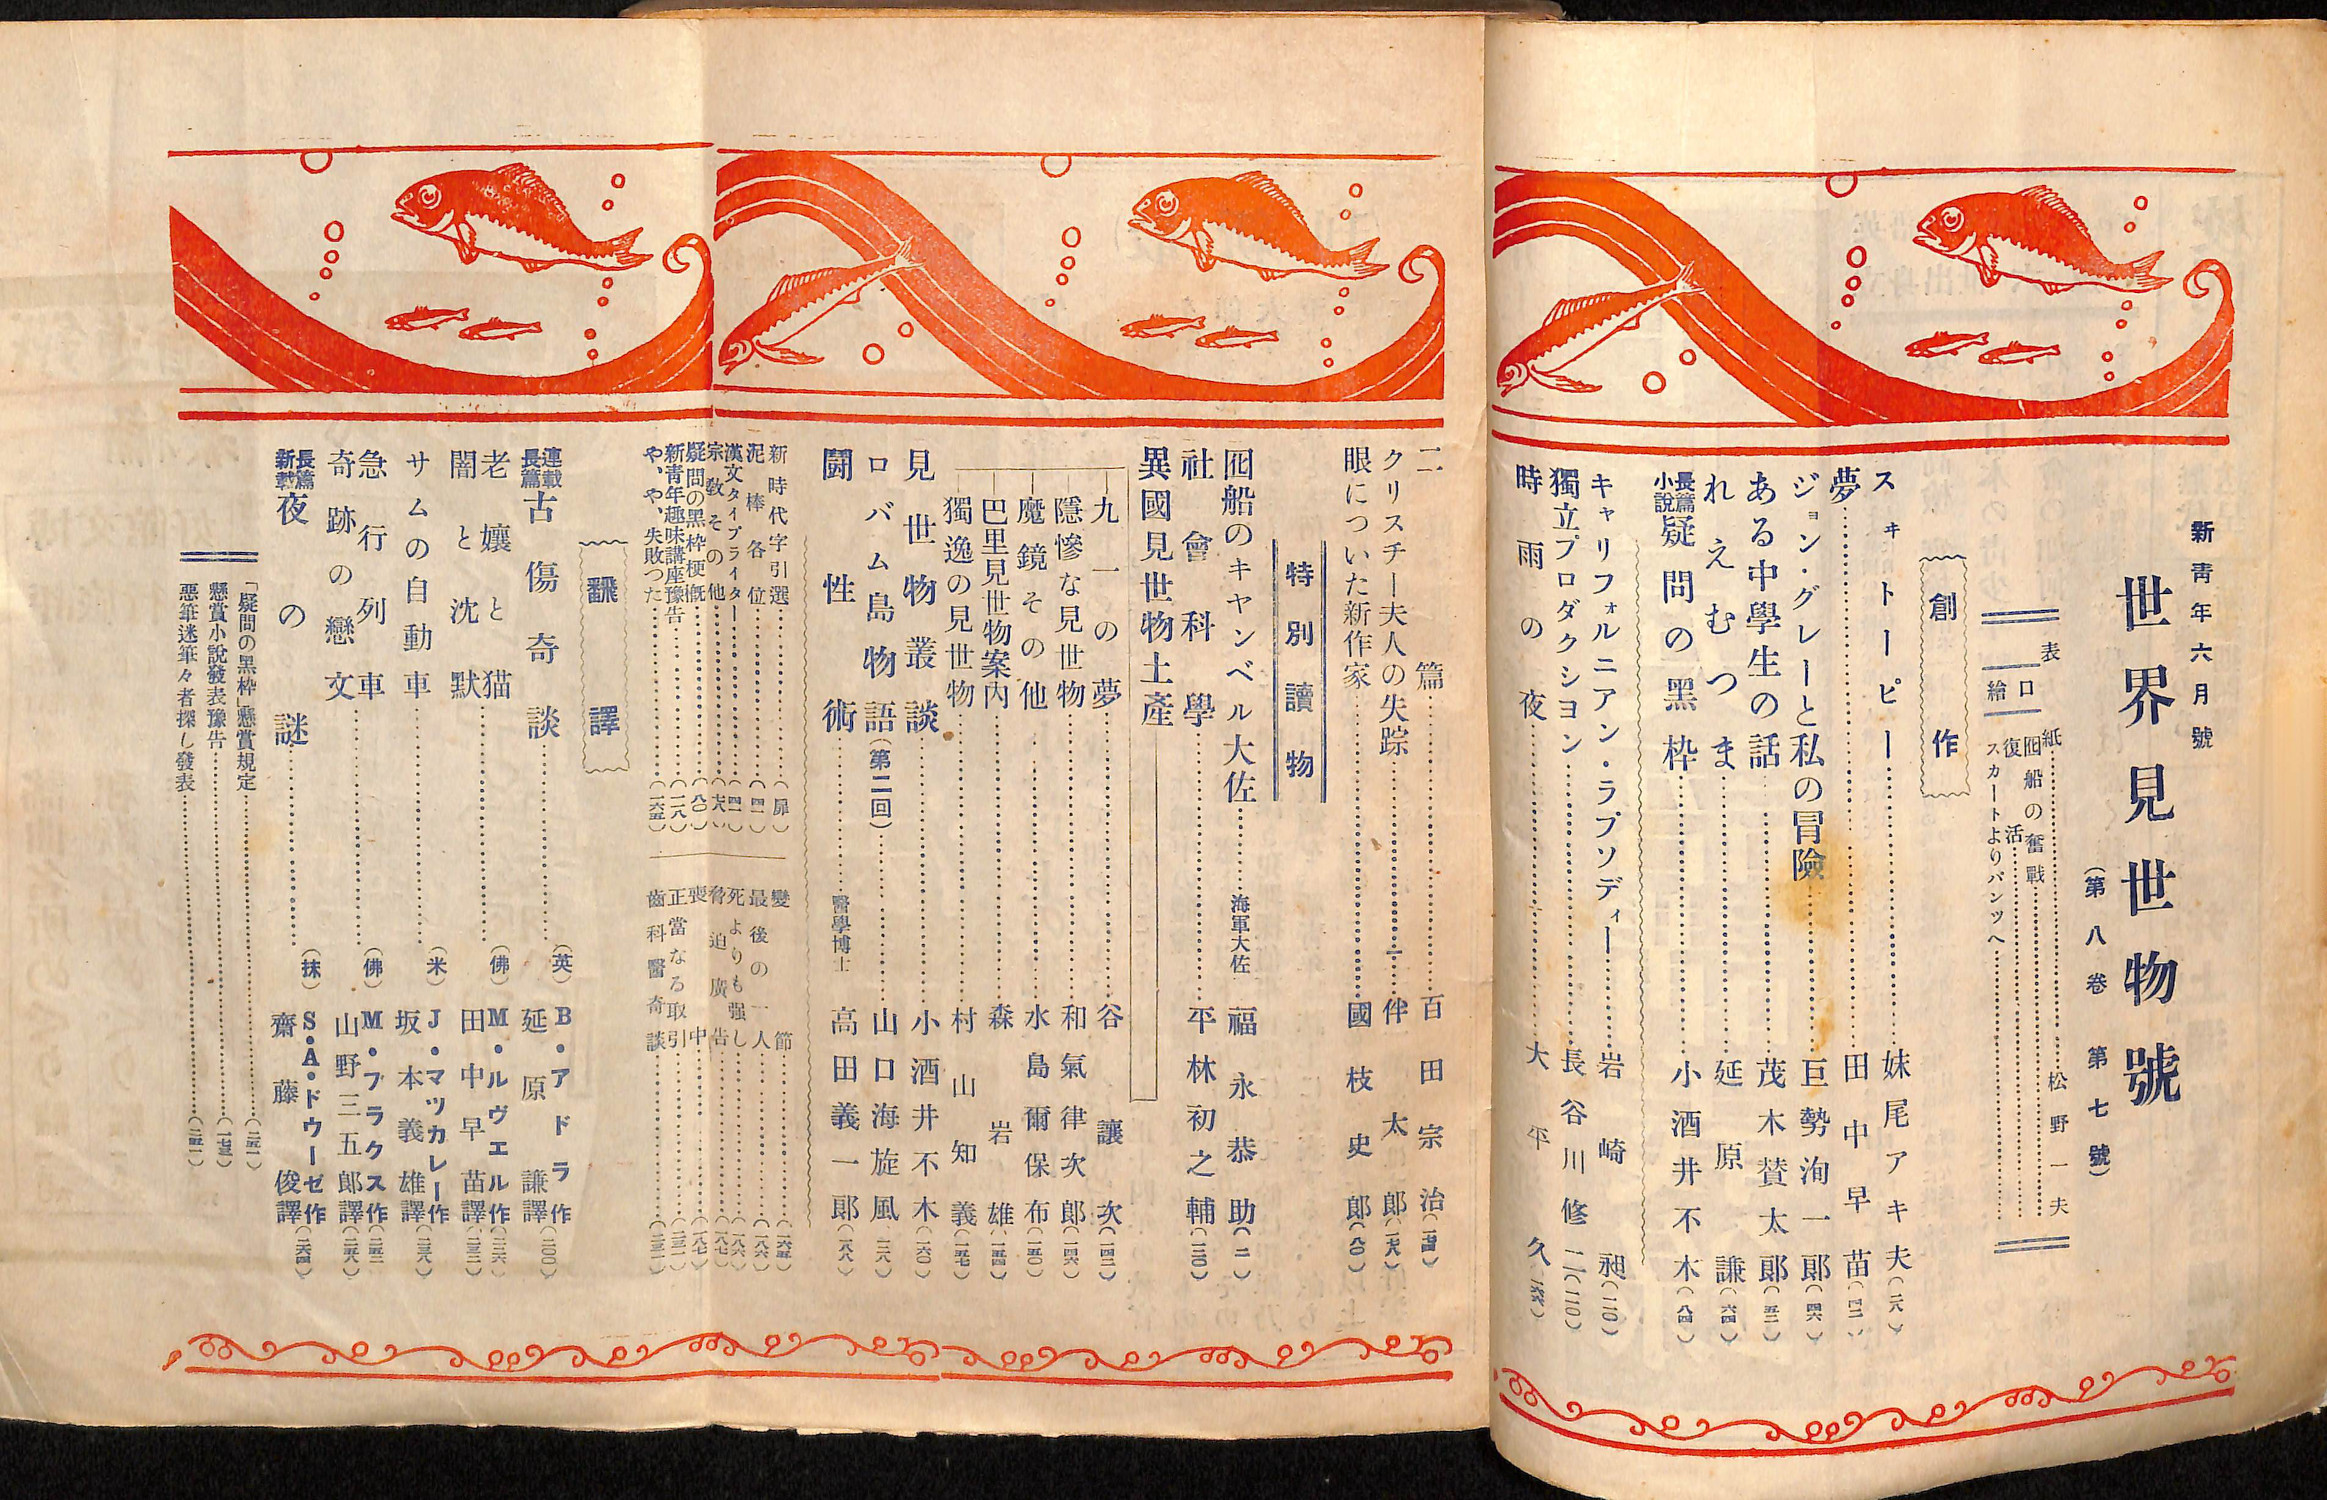 新青年六月號
世界見世物號
(第八卷 第七號)
表紙……松野一夫
口繪
囮船の奮戰……
復活……
スカートよりパンツへ……
創作
スヰートーピー……妹尾アキ夫
夢……田中早苗
ジョン・グレーと私の冒險……巨勢洵一郞(四六)
ある中學生の話……茂木賛太郞(五二)
れえむつま……延原謙(六四)
長篇小說 疑問の黑枠……小酒井不木(八四)
キャリフォルニアン・ラプソディー……岩崎昶(二一〇)
獨立プロダクシヨン……長谷川修二(二一〇)
時雨の夜……大平久
二篇……百田宗治
クリスチー夫人の失踪……伴太郞(一七八)
眼についた新作家……國枝史郞(八〇)
特別讀物
囮船のキヤンベル大佐……海軍大佐 福永恭助(二)
社會科學……平林初之輔
異國見世物土產
九一の夢……谷讓次(一四二)
隱慘な見世物……和氣律次郞(一四六)
魔鏡その他……水島爾保布(一五〇)
巴里見世物案內……森岩雄(一五四)
獨逸の見世物……村山知義(一五七)
見世物叢談……小酒井不木(一六〇)
ロバム島物語(第二回)……山口海旋風
鬪性術……醫學博士 高田義一郞(一八八)
新時代字引選……(扉)
泥棒各位……(四一)
漢文タイプライター……(四一)
宗敎その他……
疑問の黑枠梗槪……(八〇)
新靑年趣味講座豫告……(一一八)
や、や、失敗つた……(一六五)
變節……(一六五)
最後の一人……(一八六)
死よりも强し……(一八六)
脅迫廣告……(一八七)
喪中……(一八七)
正當なる取引……(二三一)
齒科醫奇談……(二三一)
飜譯
連載長篇 古傷奇談……(英) B・アドラ作 延原謙譯(二〇〇)
老孃と猫……(佛) M・ルヴエル作
闇と沈默 田中早苗譯
サムの自動車……(米) J・マツカレー作 坂本義雄譯(二三八)
急行列車……(佛) M・フラクス作
奇跡の戀文……山野三五郞譯(二五八)
長篇新載 夜の謎……(抹) S・A・ドウーゼ作 齋藤俊譯(二六四)
「疑問の黑枠」懸賞規定……
懸賞小說發表豫告……(一七三)
惡筆迷筆々者探し發表……